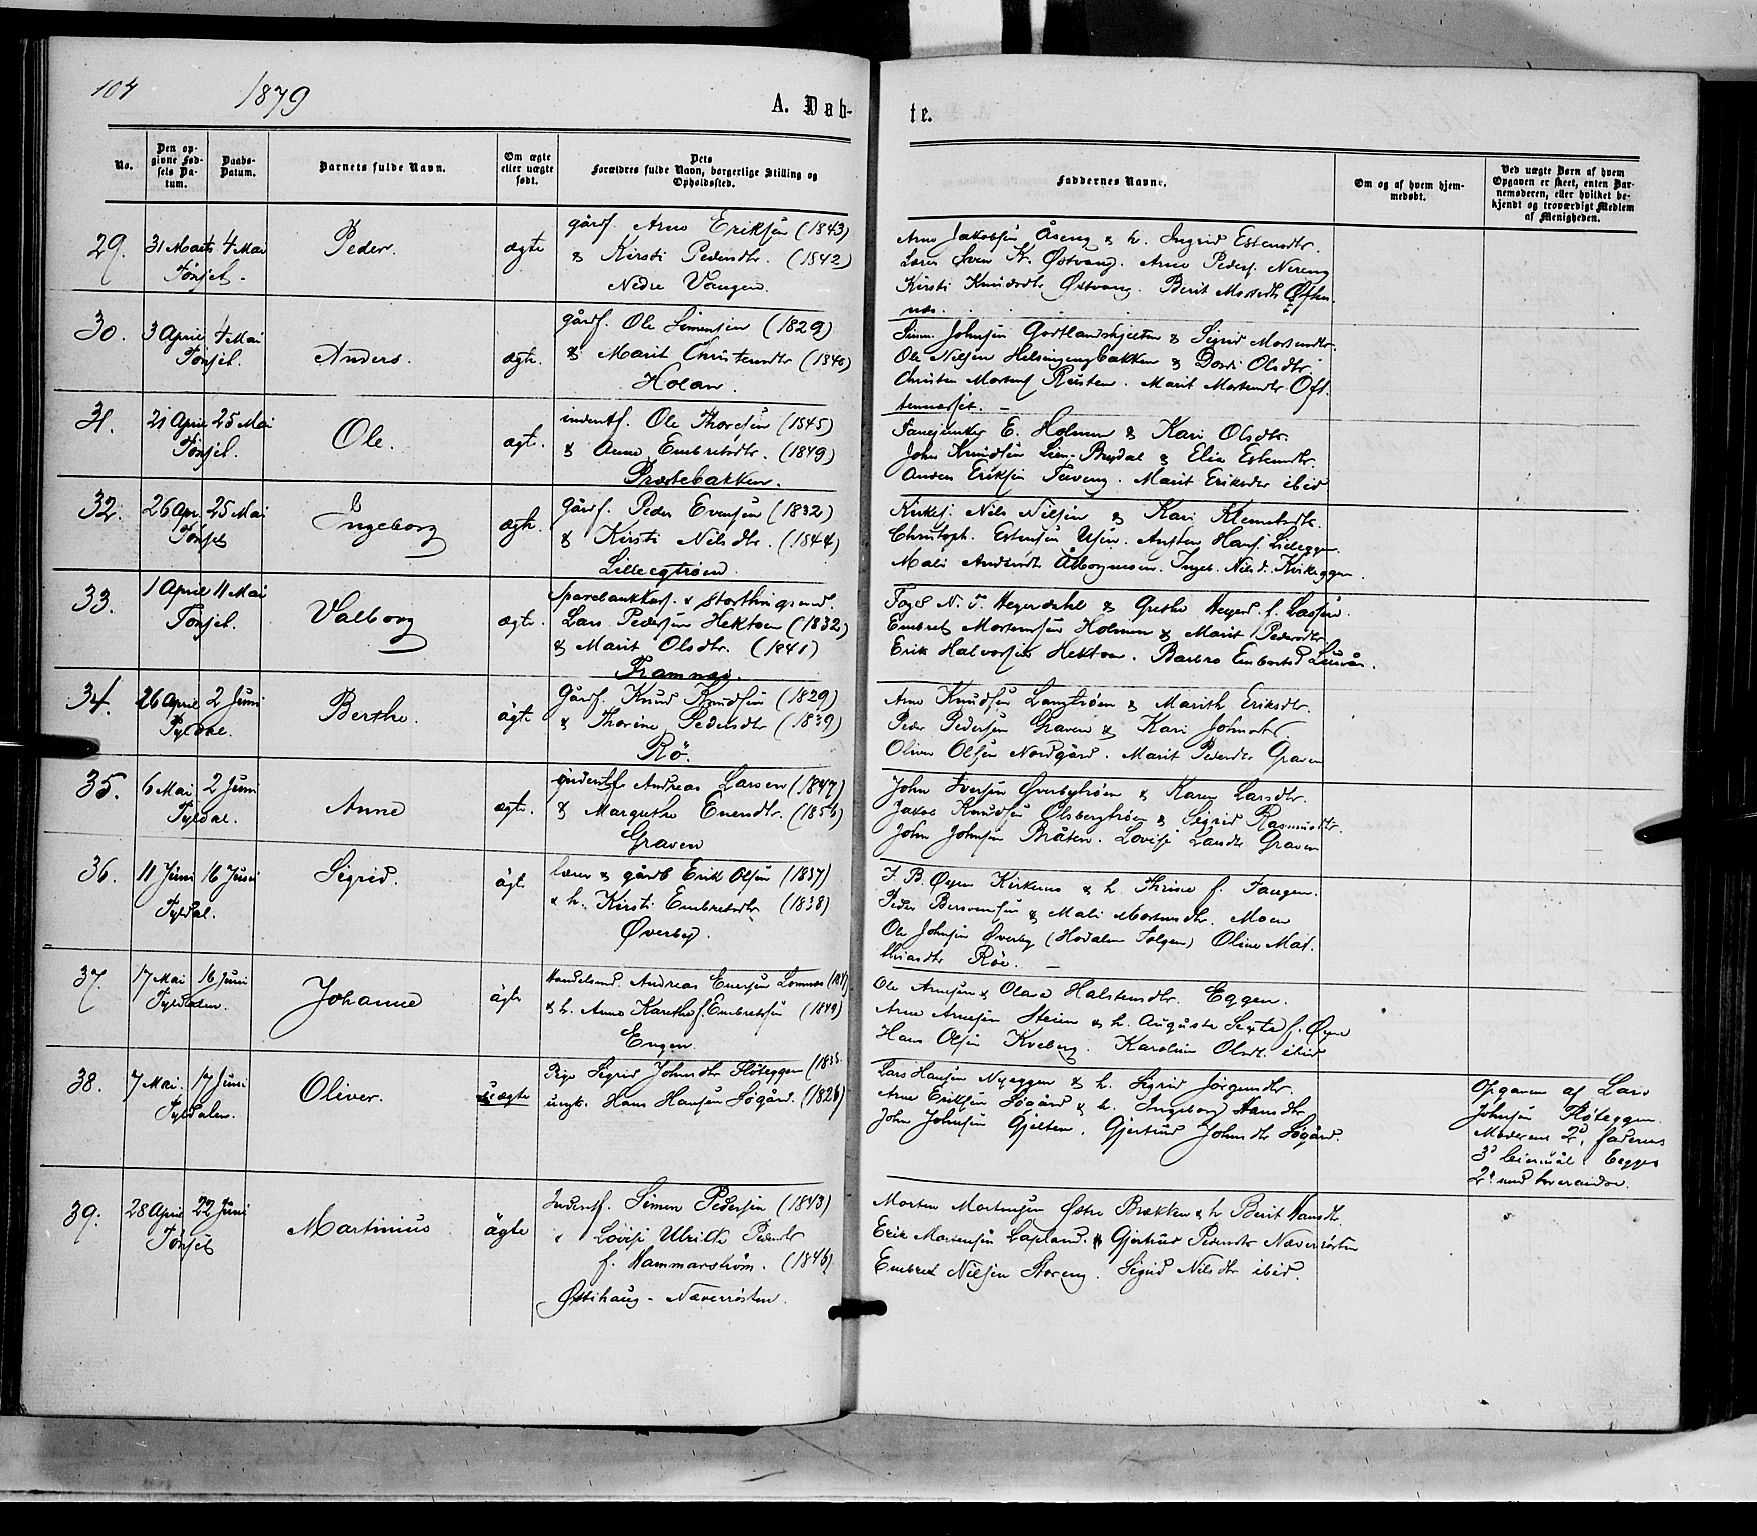 104
1879
A. Døb-
te.
No.
Den op-
givne Fød-
sels Da-
tum.
Daabs-
Datum.
Barnets fulde Navn.
Om ægte
eller uægte
født.
Dets
Forældres fulde Navn, borgerlige Stilling og
Opholdssted.
Faddernes Navne.
Om og af hvem hjem-
medøbt.
Ved uægte Børn af hvem
Opgaven er skeet, enten Bar-
nemoderen, eller hvilket be-
kjendt og troværdigt Medlem
af Menigheden.
29.
31 Marts
4 Mai
Tønset.
Peder.
ægte
gårdf. Arne Eriksen (1843)
& Kirsti Pedersdtr. (1842)
Nedre Vangen.
Arne Jakobsen Åseng & h. Ingrid Estensdtr.
Lærer Sven K. Østvang. Arne Peders. Nereng
Kirsti Knudsdtr Østvang. Berit Mortensdtr Often
næs.
30.
3 April
4 Mai
Tønset.
Anders.
ægte.
gårdf. Ole Simensen (1829)
& Marit Christensdtr (1840)
Holan.
Simen Johnsen Godtlandshjelten & Sigrid Mortensdtr.
Ole Nilsen Helsingengbakken & Dordi Olsdtr.
Christen Mortens. Reisten. Marit Mortensdtr Oft
tennæsset.
31.
21 April
25 Mai
Tønset.
Ole.
ægte.
inderstf. Ole Thoresen (1845)
& Anne Embretsdtr. (1849)
Præstebakken.
Fanejunker E. Holmen & Kari Olsdtr.
John Knudsen Lien-Brydal & Elie Estensdtr.
Anders Eriksen Teveng. Marit Eriksdtr ibid
32.
26 Apr.
25 Mai
Tønset
Ingeborg
ægte.
Gårdf. Peder Evensen (1832)
& Kirsti Nilsdtr. (1844)
Lilleegtrøen.
Kirkes. Nils Nilsen & Kari Klemetsdtr.
Christoph. Estensen Usen. Austen Hans. Lilleggen.
Mali Andersdtr Åsborgmoen. Ingeb. Nilsd. Kvikeggen.
33.
1 April
11 Mai
Tønset.
Valborg
ægte.
Sparebankkass. & storthingsmd.
Lars Pedersen Hektoen (1832)
& Marit Olsdtr. (1841)
Framnæs.
Foged N. J. Heyerdahl & Grethe Heyerd. f. Lassen.
Embret Mortensen Holmen & Marit Pedersdtr.
Erik Halvorsen Hektoen. Barbro Embretsd
34.
26 April
2 Juni
Tyldal.
Berthe.
ägte
Gårdf. Knud Knudsen (1829)
& Thorine Pedersdtr (1839)
Rö.
Arne Knudsen Langtrøen & Marith Eriksdtr.
Peder Pedersen Graven & Kari Johnsdtr.
Oliver Olsen Nordgård. Marit Pedersdtr Graven
35.
6 Mai
2 Juni
Tyldal.
Anne
ægte.
inderstf. Andreas Larsen (1847)
& Margrethe Evensdtr. (1856)
Graven
John Iversen Øverbytrøen & Karen Larsdtr.
Jakob Knudsen Olsbergtrøen & Sigrid Rasmusdtr.
John Johnsen Bråten. Lovise Larsdtr Graven
36.
11 Juni
16 Juni
Tyldal.
Sigrid.
ägte
lærer & gårdb Erik Olsen (1837)
& h. Kirsti Embretsdtr (1838)
Øverby.
J. B. Øyen Kirkenes & h. Thrine f. Fangen.
Peder Bersvensen & Mali Mortensdtr. Moen
Ole Johnsen Øverby (Hodalen Tolgen) Oline Mat-
thiasdtr Röe.
37.
17 Mai
16 Juni
Tyldalen.
Johanne
ägte
Handelsmd. Andreas Enersen Lomnæs
& h. Anne Karethe f. Embretsen (1849)
Engen.
Ole Arnesen & Olava Halstensdtr. Eggen.
Arne Arnesen Steien & h. Auguste Sexte f. Øyen
Hans Olsen Kveberg. Karoline Olsdt. ibid
38.
7 Mai.
17 Juni
Tyldalen.
Oliver.
uægte
Pige Sigrid Johnsdtr Fløteggen (1835
ungk. Hans Hansen Søgård. (1826)
Lars Hansen Nyeggen & h. Sigrid Jörgensdtr.
Arne Eriksen Søgård & h. Ingeborg Hansdtr
John Johnsen Gjelten. Gjertrud Johnsdtr Søgård.
Opgaven af Lars
Johnsen Fløteggen.
Moderens 2d, faderens
3d leiermål. Begges
2d med hverandre.
39.
28 April
22 Juni
Tønset
Martinius
ägte
Inderstf. Simen Pedersen (1843)
& Lövise Ulrikke Pedersdtr
f. Hammarstrøm. (1846)
Østihaug - Næverrösten.
Morten Mortensen Østre Brækken & h Berit Hansdtr.
Erik Mortensen Lapland. & Gjertrud Pedersdtr Næverrösten
Embret Nilsen Storeng. Sigrid Nilsdtr ibid.